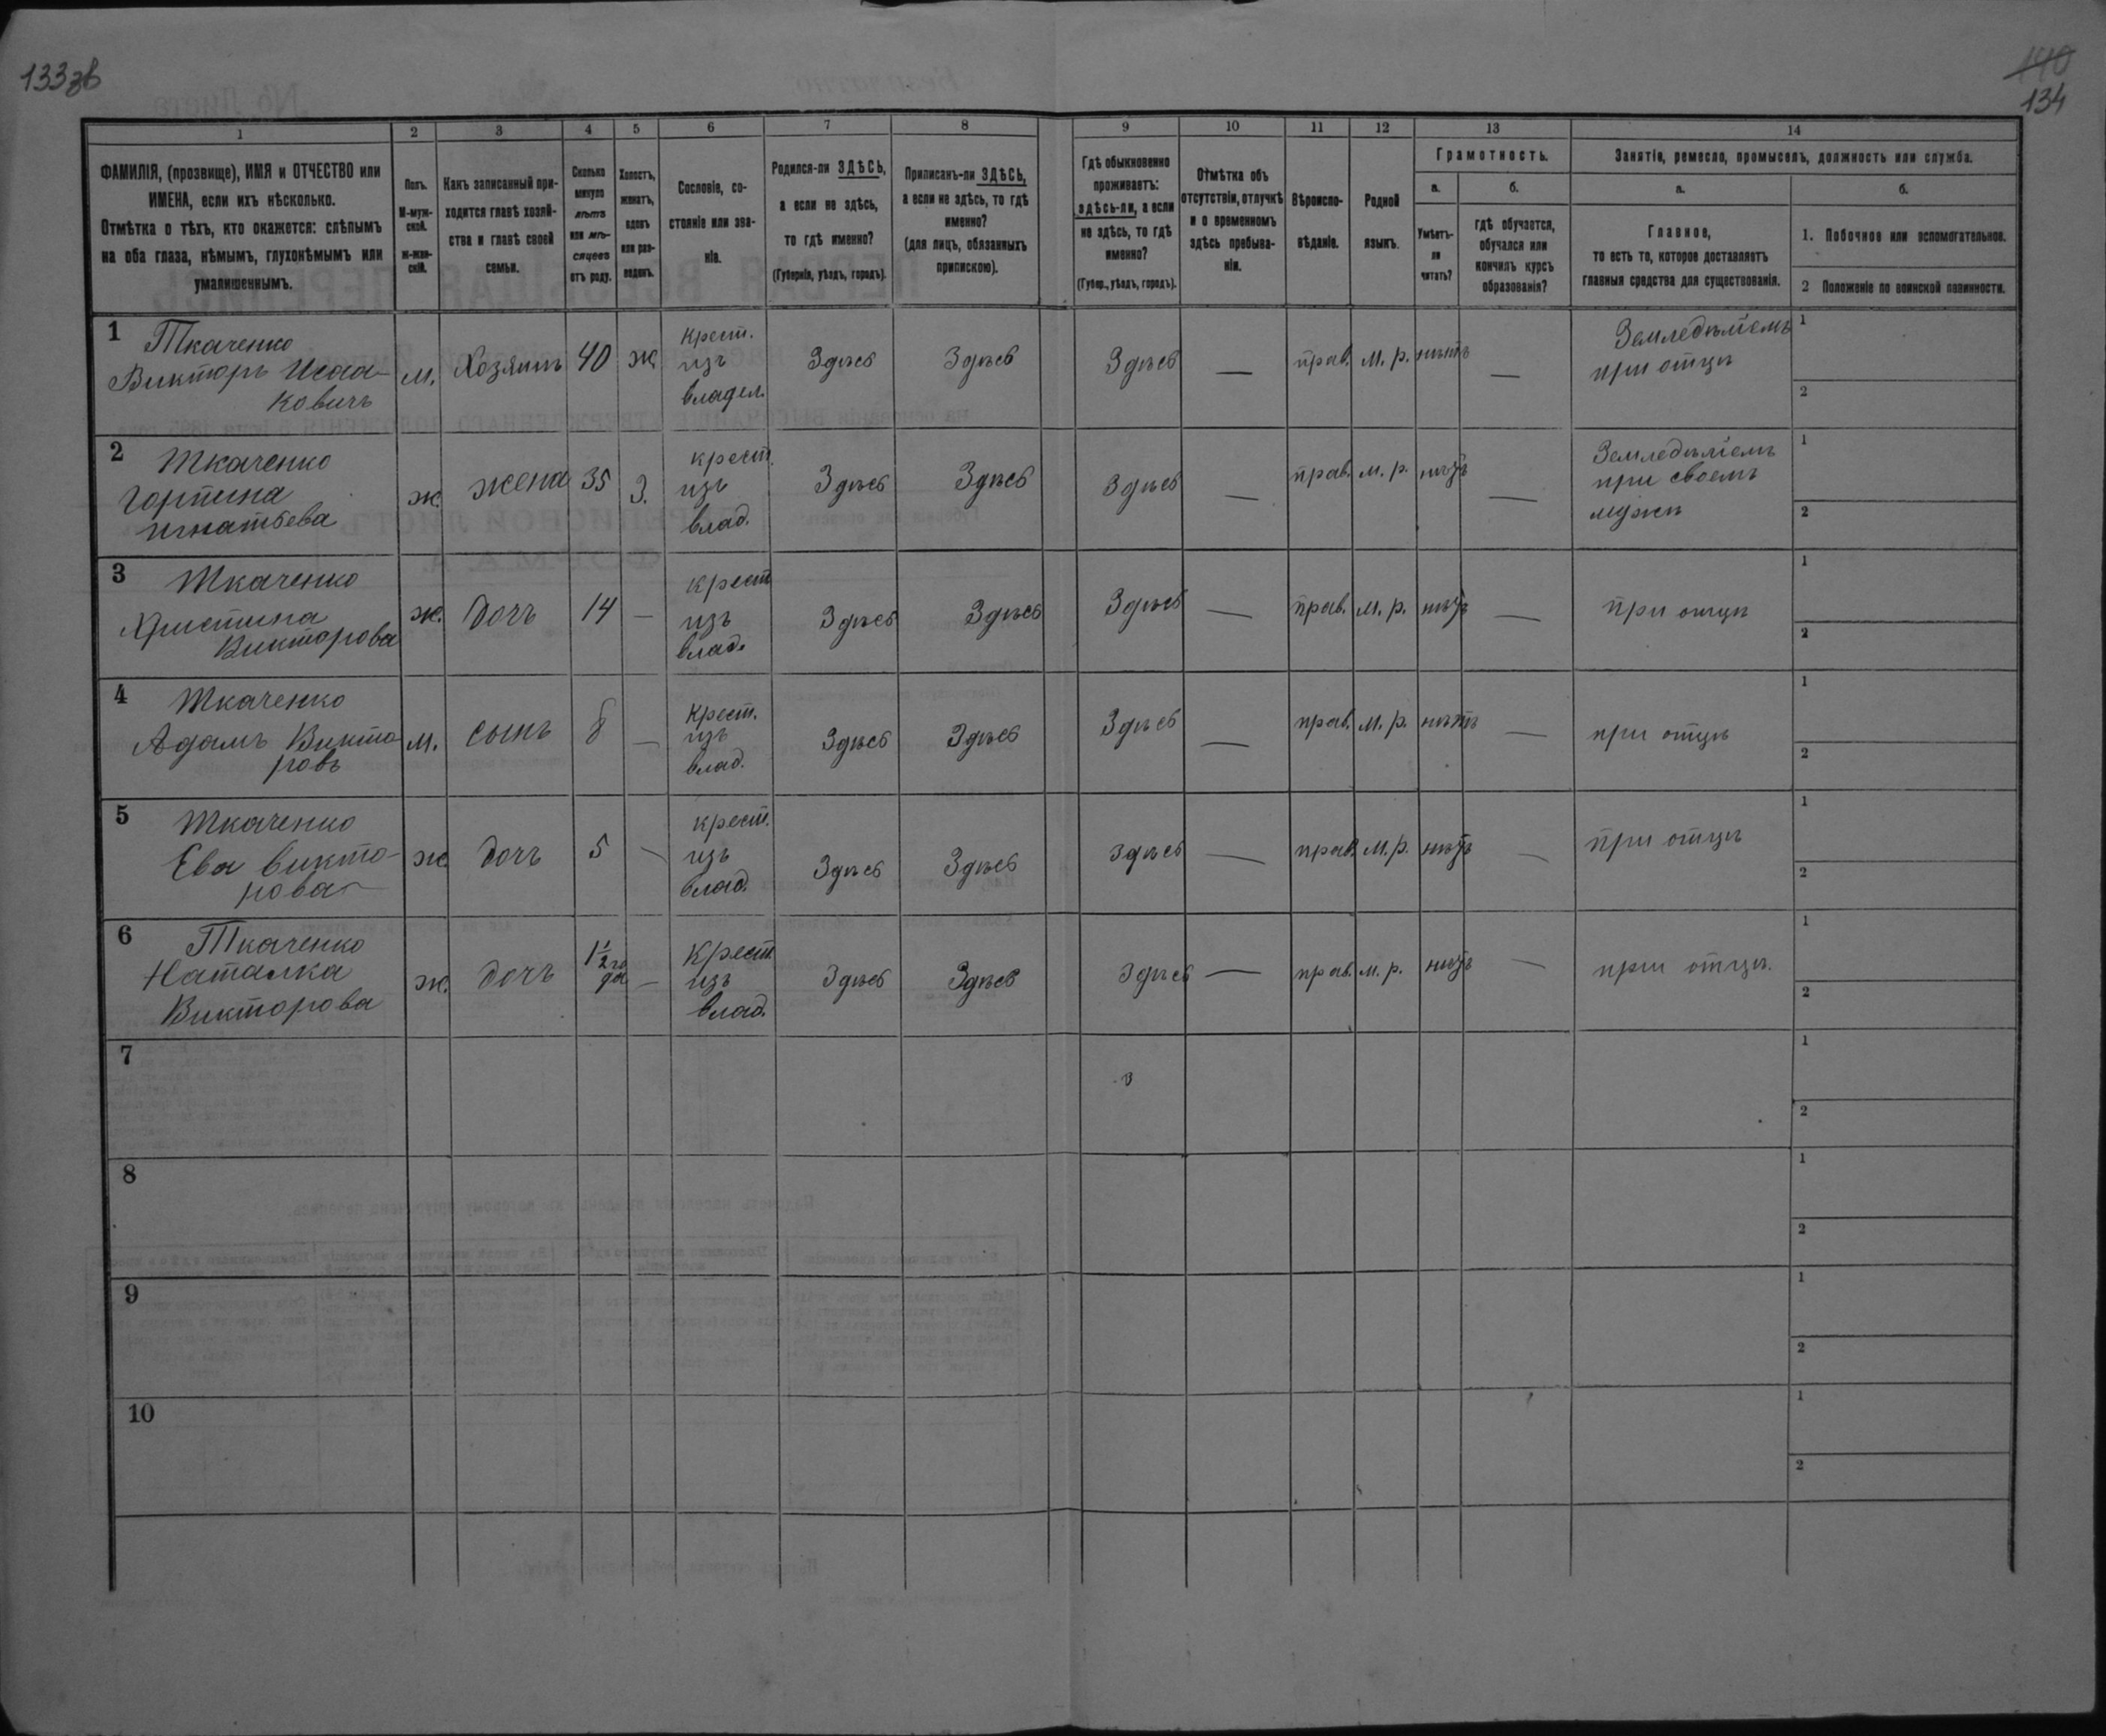 133зв
140
134
1
2
3
4
5
6
7
8
9
10
11
12
13
14
ФАМИЛІЯ, (прозвище), ИМЯ и ОТЧЕСТВО или
ИМЕНА, если ихъ нѣсколько.
Отмѣтка о тѣхъ, кто окажется: слѣпымъ
на оба глаза, нѣмымъ, глухонѣмымъ или
умалишеннымъ.
Полъ.
М-муж-
ской.
Ж-жен-
скій.
Какъ записанный при-
ходится главѣ хозяй-
ства и главѣ своей
семьи.
Сколько
минуло
лѣтъ
или мѣ-
сяцевъ
отъ роду.
Холостъ,
женатъ,
вдовъ
или раз-
веденъ.
Сословіе, со-
стояніе или зва-
ніе.
Родился-ли ЗДѢСЬ,
а если не здѣсь,
то гдѣ именно?
(Губернія, уѣздъ, городъ).
Приписанъ-ли ЗДѢСЬ,
а если не здѣсь, то гдѣ
именно?
(для лицъ, обязанныхъ
припискою).
Гдѣ обыкновенно
проживаетъ:
здѣсь-ли, а если
не здѣсь, то гдѣ
именно?
(Губер., уѣздъ, городъ).
Отмѣтка объ
отсутствіи, отлучкѣ
и о временномъ
здѣсь пребыва-
ніи.
Вѣроиспо-
вѣданіе.
Родной
языкъ.
Грамотность.
а.
б.
Умѣетъ-
ли
читать?
гдѣ обучается,
обучался или
кончилъ курсъ
образованія?
Занятіе, ремесло, промыселъ, должность или служба.
а.
б.
Главное,
то есть то, которое доставляетъ
главныя средства для существованія.
1. Побочное или вспомогательное.
2 Положеніе по воинской повинности.
1
Ткаченко
Викторъ Исаа-
ковичъ
м.
Хозяинъ
40
ж
Крест.
изъ
владел.
Здѣсь
Здѣсь
Здѣсь
—
прав.
м. р.
нѣтъ
—
Земледѣліемъ
при отцѣ
1
2
2
Ткаченко
Горпина
Игнатьева
ж.
жена
35
З.
крест.
изъ
влад.
Здѣсь
Здѣсь
Здѣсь
—
прав.
м. р.
нѣтъ
—
Земледѣліемъ
при своемъ
мужѣ
1
2
3
Ткаченко
Христина
Викторова
ж.
дочъ
14
—
крест
изъ
влад.
Здѣсь
Здѣсь
Здѣсь
—
прав.
м. р.
нѣтъ
—
при отцѣ
1
2
4
Ткаченко
Адамъ Викто
ровъ
м.
сынъ
8
—
Крест.
изъ
влад.
Здѣсь
Здѣсь
Здѣсь
—
прав.
м. р.
нѣтъ
—
при отцѣ
1
2
5
Ткаченко
Ева Викто-
рова
ж
дочъ
5
—
крест.
изъ
влад.
Здѣсь
Здѣсь
здѣсь
—
прав.
м. р.
нѣтъ
—
при отцѣ
1
2
6
Ткаченко
Наталка
Викторова
ж.
дочъ
1½ го
да
—
Крест
изъ
влад.
Здѣсь
Здѣсь
Здѣсь
—
прав.
м. р.
нѣтъ
—
при отцѣ.
1
2
7
з
1
2
8
1
2
9
1
2
10
1
2